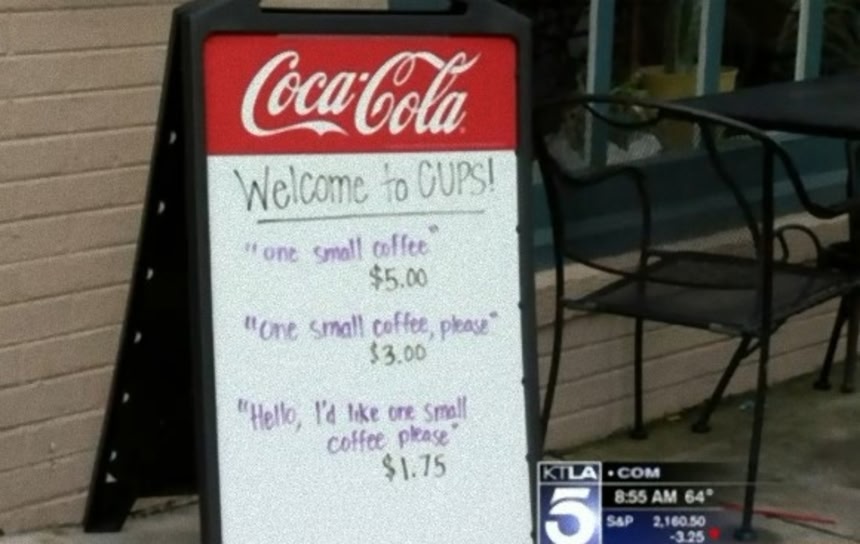 Coca-Cola
Welcome to CUPS!
"one small coffee"
$5.00
"One small coffee, please"
$3.00
"Hello, I'd like one small
coffee please"
$1.75
KTLA • COM
5
8:55 AM 64°
S&P 2,160.50
-3.25